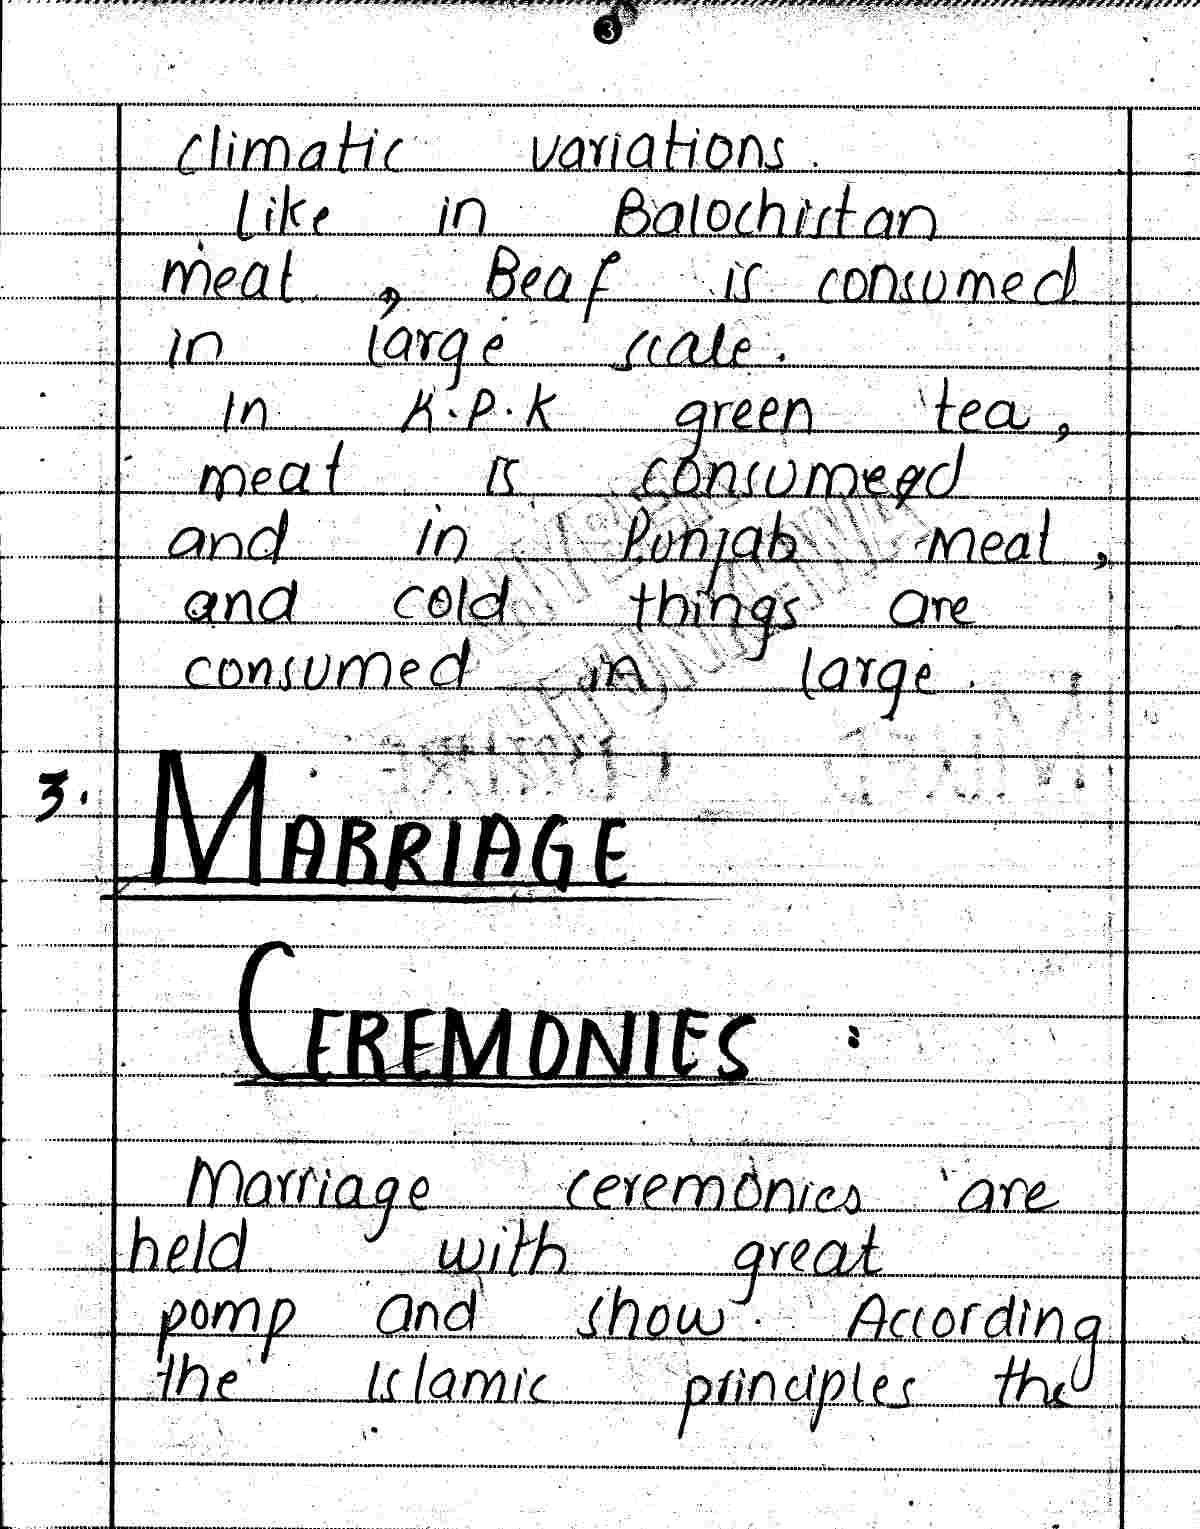 3
climatic variations.
Like in Balochistan
meat, Beaf is consumed
in large scale.
In K.P.K green tea,
meat is consumed
and in Punjab meal,
and cold things are
consumed in large.
3. MARRIAGE
CEREMONIES :
Marriage ceremonies are
held with great
pomp and show. According
the Islamic principles the